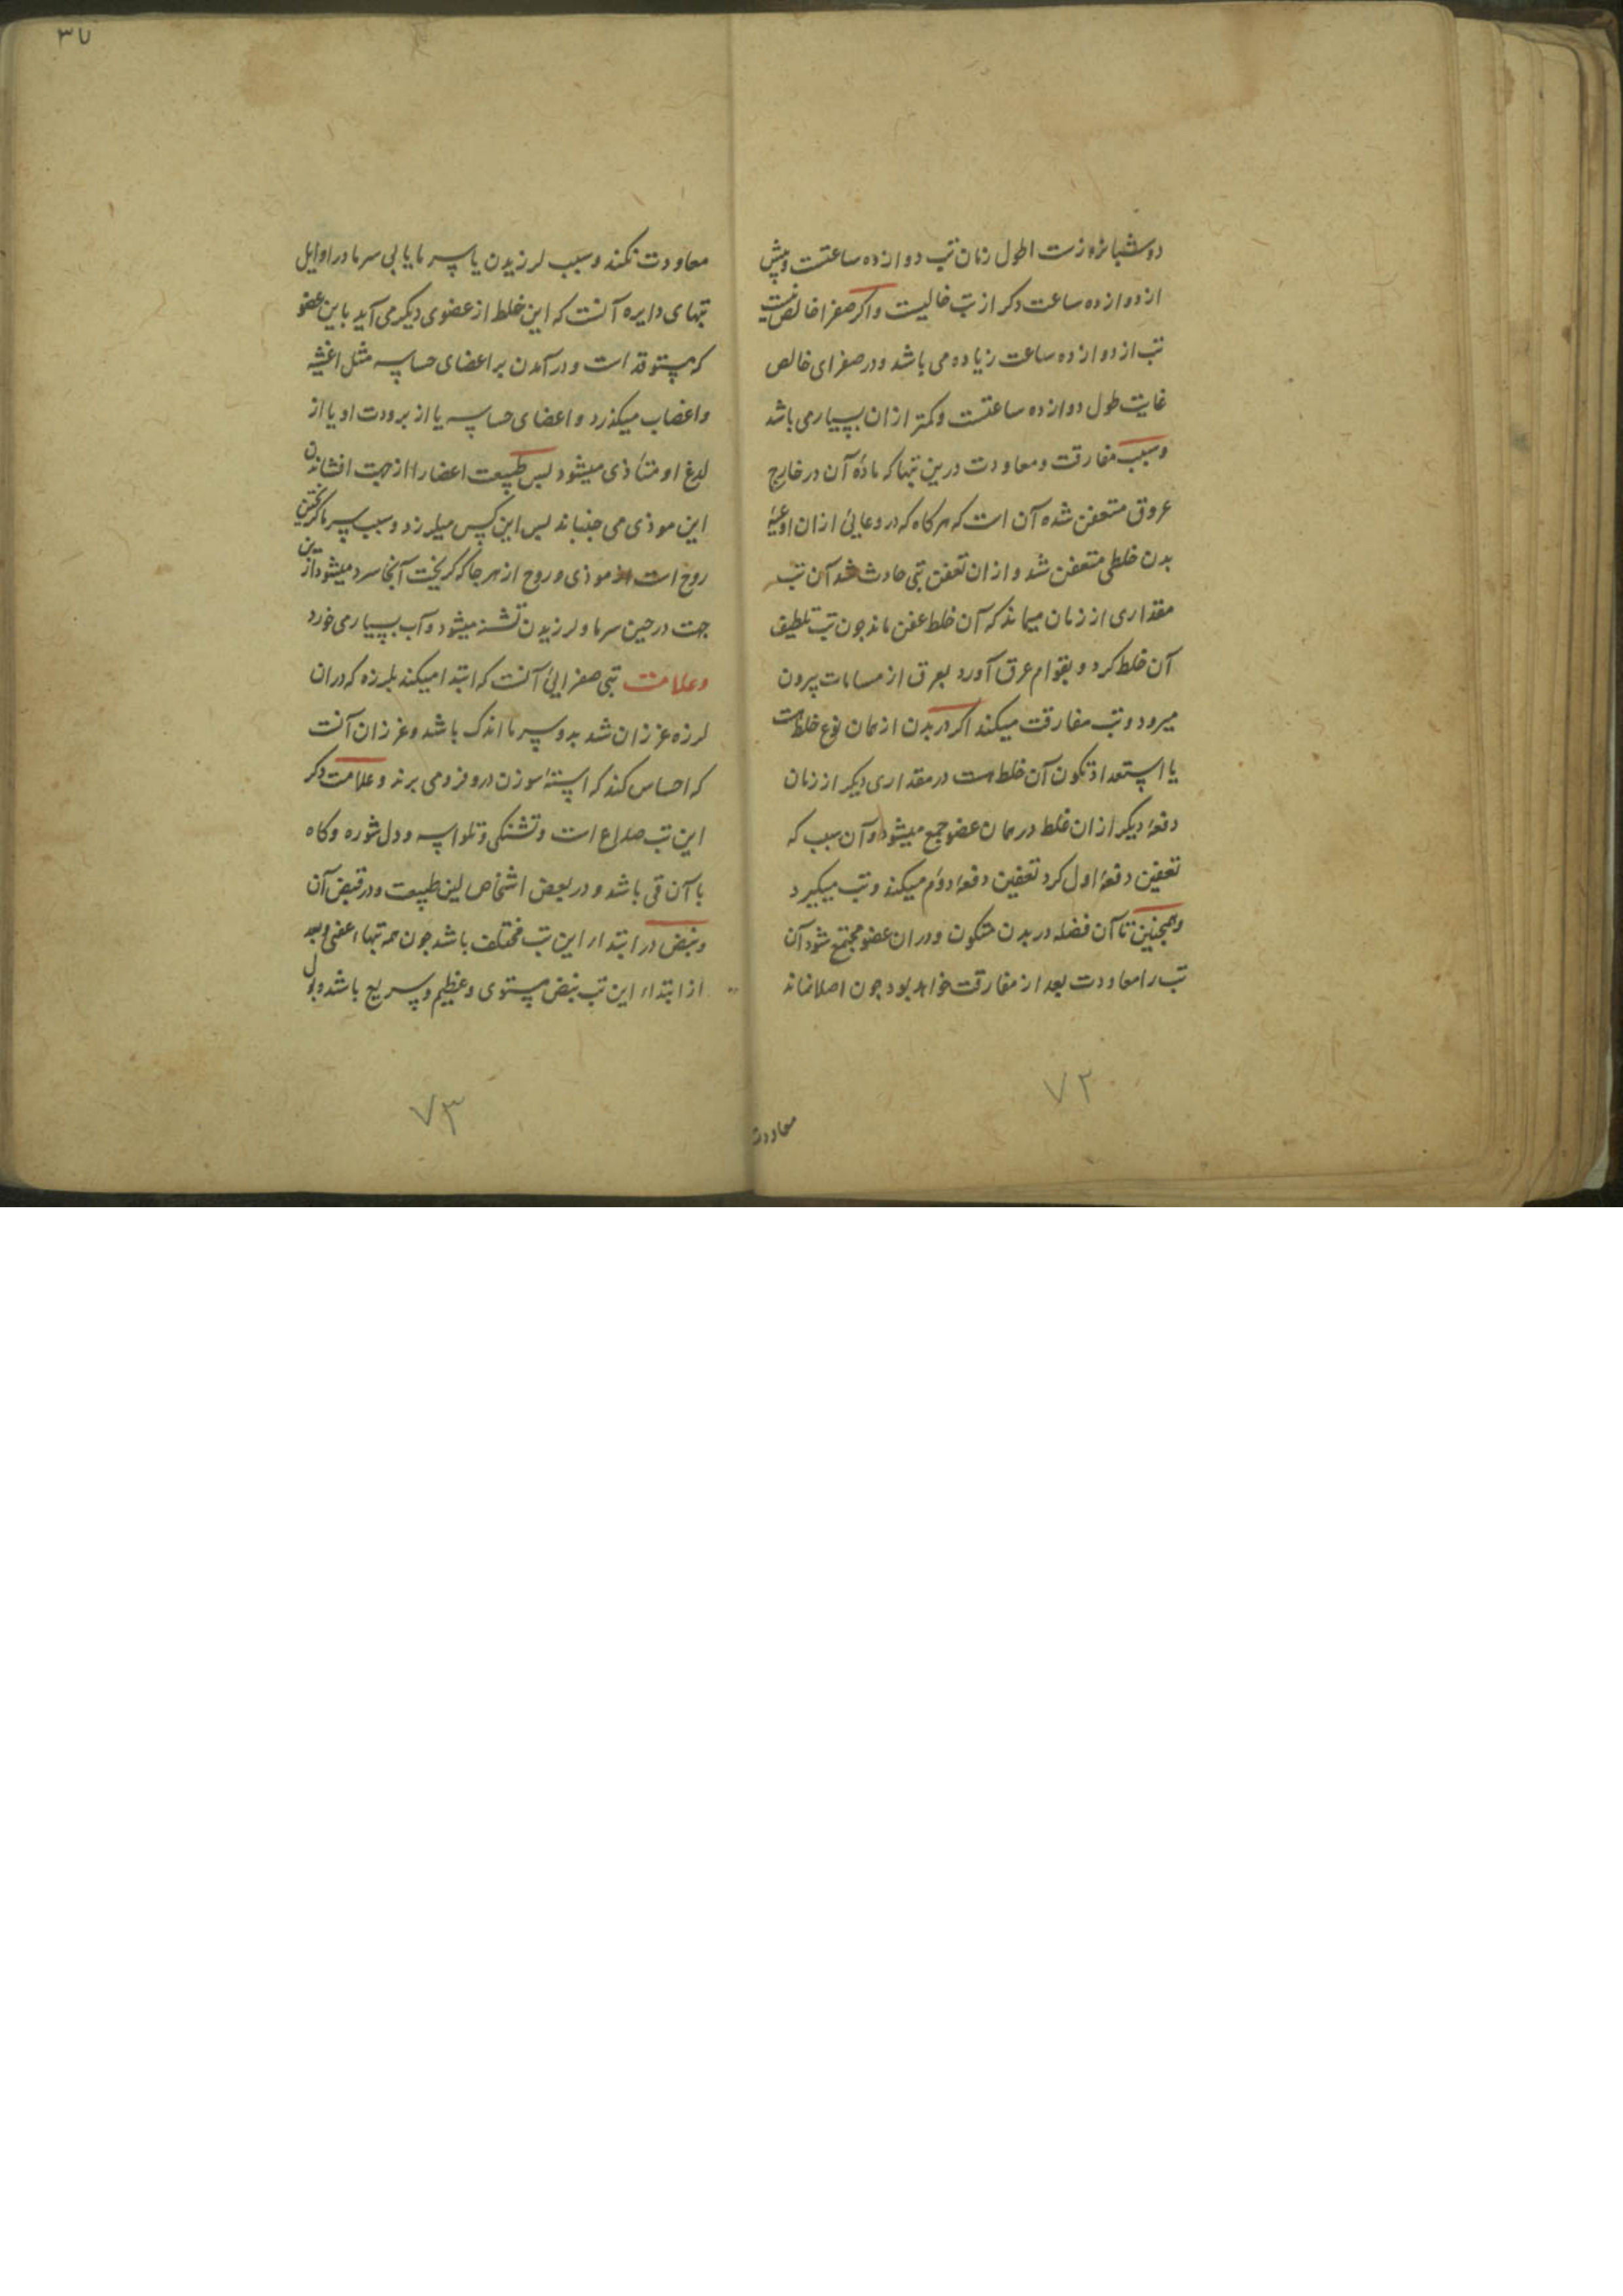 دو شبانروزست اطول زمان تب دوازده ساعتست و پیش
از دوازده ساعت دکر از تب خالیست و اکر صفرا خالص نیست
تب از دوازده ساعت زیاده می باشد و در صفرای خالص
غایت طول دوازده ساعتست و کمتر ازان بسیار می باشد
و سبب مفارقت و معاودت درین تبها که مادّه آن در خارج
عروق متعفن شده آن است که هر کاه که در وعائی ازان اوعیهٔ
بدن خلطی متعفن شد و ازان تعفن تبی حادث شد آن تب
مقداری از زمان میماند که آن خلط عفن ماند جون تب تلطیف
آن خلط کرد و بقوام عرق آورد بعرق از مسامات بیرون
میرود و تب مفارقت میکند اکر در بدن از همان نوع خلط هست
یا استعداد تکون آن خلط هست در مقداری دیکر از زمان
دفعهٔ دیکر ازان خلط در همان عضو جمع میشود و آن سبب که
تعفین دفعهٔ اول کرد تعفین دفعهٔ دوم میکند و تب میکیرد
و همجنین تا آن فضله در بدن متکون و دران عضو مجتمع شود آن
تب را معاودت بعد از مفارقت خواهد بود جون اصلا نماند
معاودت
۷۲
۳۷
معاودت نکند و سبب لرزیدن با سرما یا بی سرما در اوایل
تبهای دایره آنست که این خلط از عضوی دیکر می آید باین عضو
که مستوقد است و در آمدن بر اعضای حساسه مثل اغشیه
و اعصاب میکذرد و اعضای حساسه یا از برودت او یا از
لدغ او متأذی میشود بس طبیعت اعضا را از جهت افشاندن
این موذی می جنباند بس این کس میلرزد و سبب سرما کریختن
روح است از موذی و روح از هر جا که کریخت آنجا سرد میشود ازین
جهت در حین سرما و لرزیدن تشنه میشود و آب بسیار می خورد
و علامت تبی صفرائی آنست که ابتدا میکند بلرزه که دران
لرزه غرزان شدید و سرما اندک باشد و غرزان آنست
که احساس کند که استهٔ سوزن درو فرو می برند و علامت دکر
این تب صداع است و تشنکی و تلواسه و دل شوره و کاه
با آن قی باشد و در بعض اشخاص لین طبیعت و در قبض آن
و نبض در ابتداء این تب مختلف باشد جون همه تبهاء عفنی و بعد
از ابتداء این تب نبض مستوی و عظیم و سریع باشد و بول
۷۳